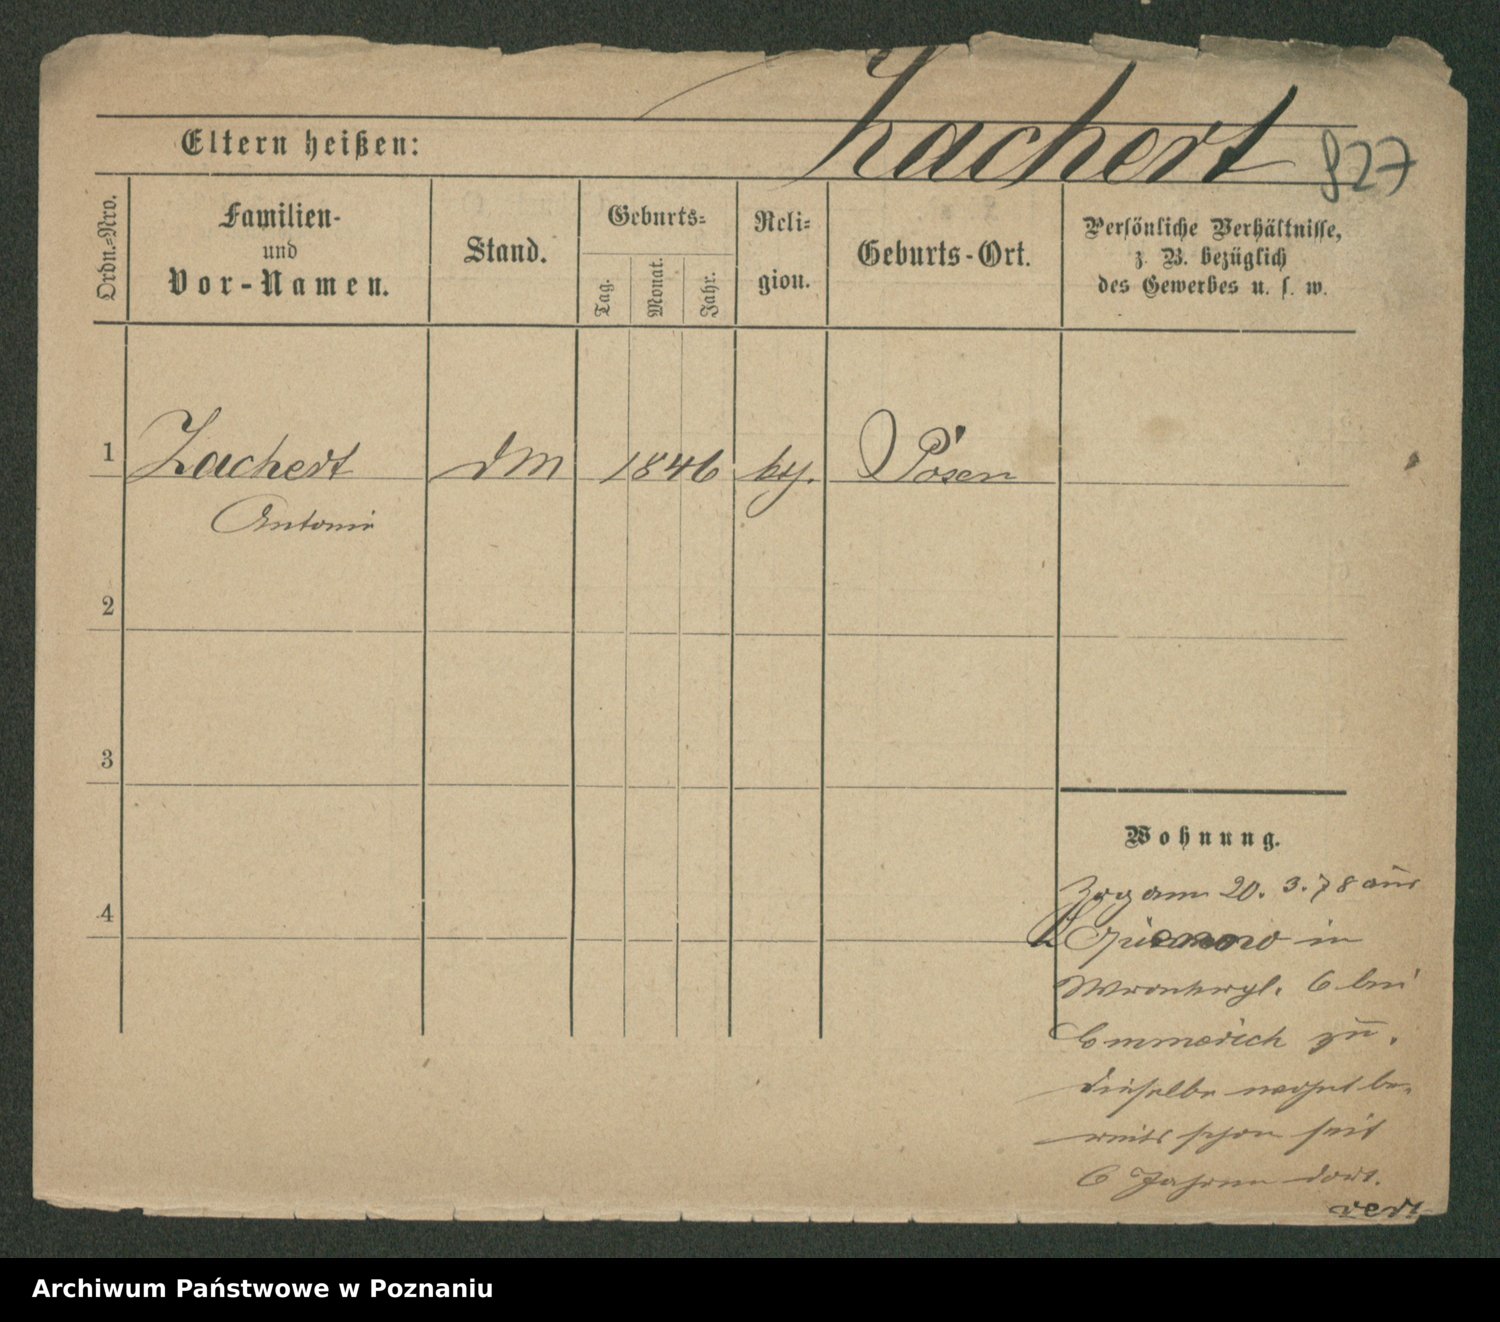 Zachert
827
Eltern heißen:
Ordn.=Nro.
Familien-
und
Vor-Namen.
Stand.
Geburts=
Tag.
Monat.
Jahr.
Reli=
gion.
Geburts-Ort.
Persönliche Verhältnisse,
z. B. bezüglich
des Gewerbes u. s. w.
1
Zachert
DM
1846
Posen
Antonie
2
3
4
Wohnung.
Zog am 20. 3. 78 aus
in
6 bei
Emmerich zu.
Dieselbe wohnt be-
reits schon seit
6 Jahren dort.
vert
Archiwum Państwowe w Poznaniu